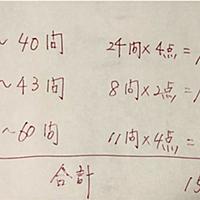 ~40問 24問×4点=
~43問 8問×2点=
~60問 11問×4点=
合計 15